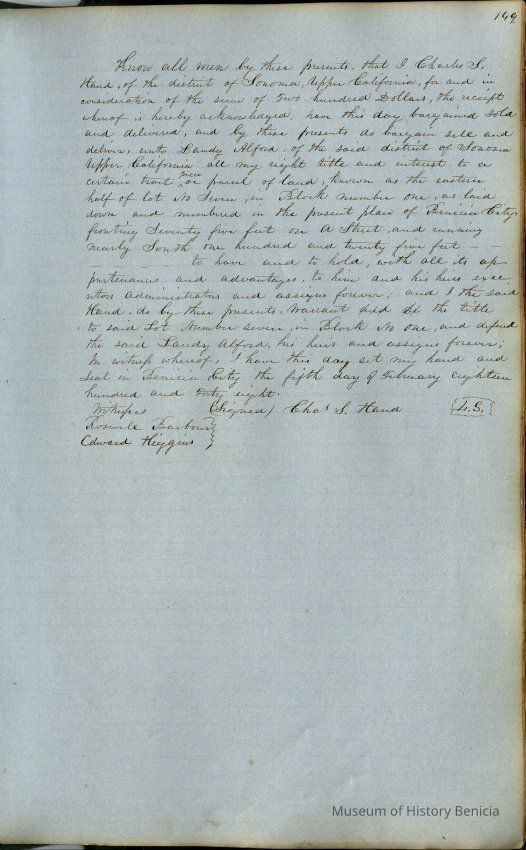 149
Know all men by these presents, that I Charles S.
Hand, of the district of Sonoma, Upper California, for and in
consideration of the sum of two hundred Dollars, the receipt
whereof is hereby acknowledged, have this day bargained sold
and delivered, and by these presents do bargain sell and
deliver, unto Landy Alford, of the said district of Sonoma
Upper California all my right title and interest to a
certain tract piece or parcel of land, known as the eastern
half of lot No Seven, in Block number one, as laid
down and numbered in the present plan of Benicia City,
fronting Seventy five feet on A Street, and running
nearly South one hundred and twenty five feet - -
- - - - to have and to hold, with all its ap-
purtenances and advantages, to him and his heirs exec
utors administrators and assigns forever; and I the said
Hand, do by these presents, Warrant and the title
to said Lot Number seven, in Block No one, and defend
the said Landy Alford, his heirs and assigns forever;
In witness whereof, I have this day set my hand and
Seal in Benicia City the fifth day of February eighteen
hundred and forty eight.
Witness (Signed) Chas S. Hand L.S.
Barbour
Edward Higgins
Museum of History Benicia